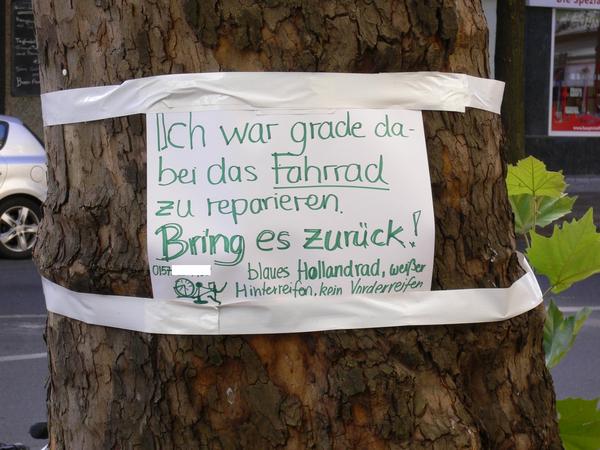 Ich war grade da-
bei das Fahrrad
zu reparieren.
Bring es zurück!
0157
blaues Hollandrad, weißer
Hinterreifen, kein Vorderreifen